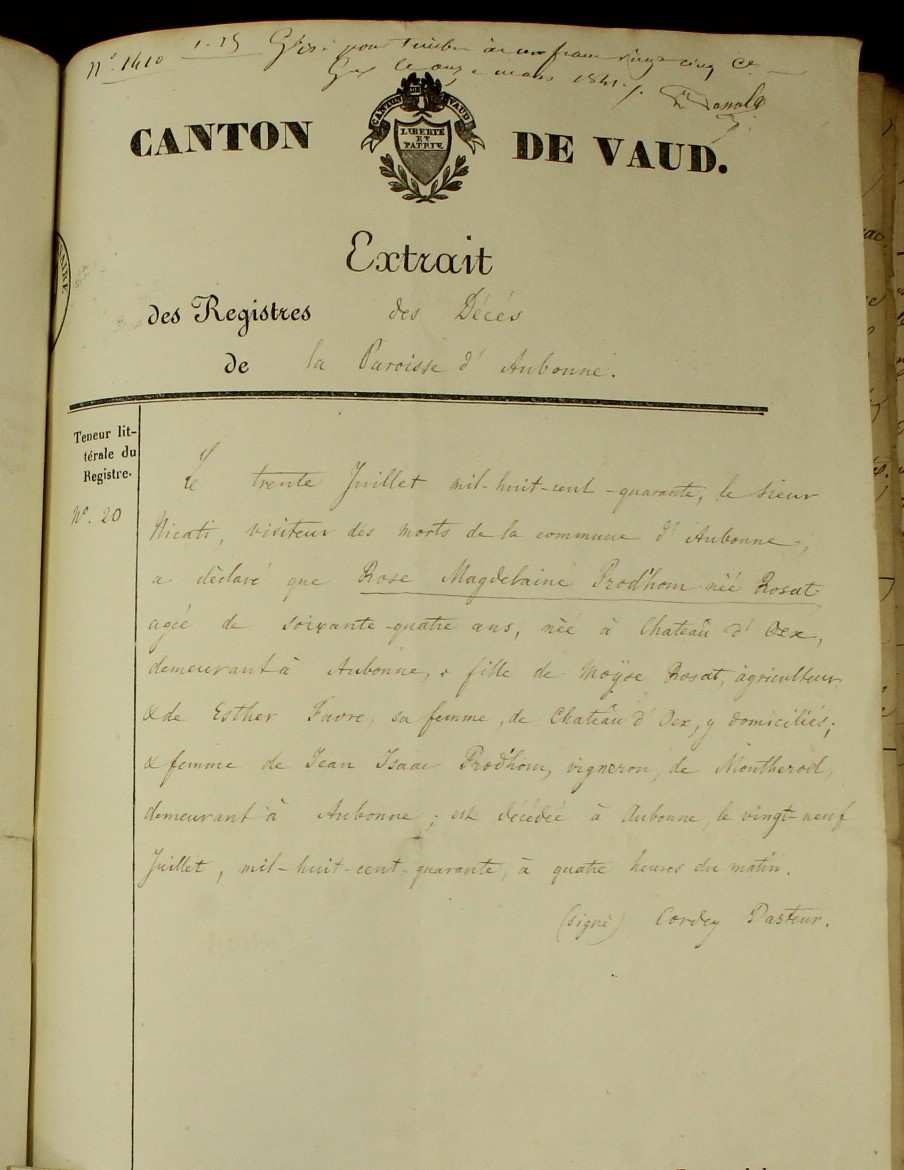 N° 1410 1.25 Visé pour timbre à un franc vingt cinq C.
Gex le onze mars 1841.
CANTON DE VAUD.
CANTON DE VAUD
LIBERTÉ
ET
PATRIE
Extrait
des Registres des Décés
de la Paroisse d'Aubonne.
AIRE
Teneur lit-
térale du
Registre.
N°. 20
Le trente Juillet mil-huit-cent-quarante, le sieur
Nicati, visiteur des morts de la commune d'Aubonne,
a déclaré que Rose Magdelaine Prod'hom née Rosat
agée de soixante-quatre ans, née à Chateau d'Oex,
demeurant à Aubonne, fille de Moÿse Rosat, agriculteur
& de Esther Favre, sa femme, de Chateau d'Oex, y domiciliés;
& femme de Jean Isaac Prod'hom, vigneron, de Montherod,
demeurant à Aubonne; est décédée à Aubonne, le vingt-neuf
Juillet, mil-huit-cent-quarante, à quatre heures du matin.
(signé) Cordey Pasteur.